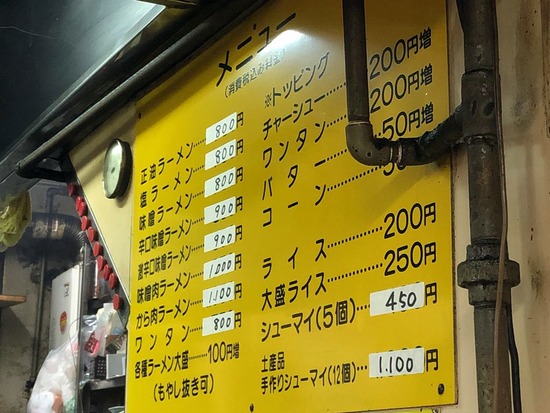 メニュー
(消費税込み料金)
正油ラーメン……800円
塩ラーメン……800円
味噌ラーメン……800円
辛口味噌ラーメン…900円
激辛口味噌ラーメン…900円
味噌肉ラーメン……1,000円
から肉ラーメン……1,100円
ワンタン……800円
各種ラーメン大盛……100円増
(もやし抜き可)
※トッピング
チャーシュー……200円増
ワンタン……200円増
バター……50円増
コーン……50
ライス……200円
大盛ライス……250円
シューマイ(5個)…450円
土産品
手作りシューマイ(12個)…1,100円